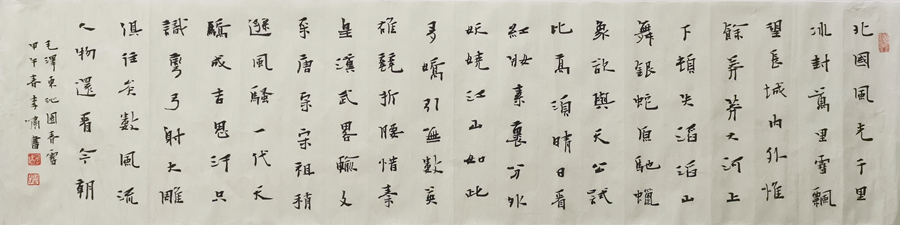 北國風光千里
冰封萬里雪飄
望長城內外惟
餘莽莽大河上
下頓失滔滔山
舞銀蛇原馳蠟
象欲與天公試
比高須晴日看
紅妝素裹分外
妖嬈江山如此
多嬌引無數英
雄競折腰惜秦
皇漢武畧輸文
采唐宗宋祖稍
遜風騷一代天
驕成吉思汗只
識彎弓射大雕
俱往矣數風流
人物還看今朝
毛澤東沁園春雪
甲午春李嘯書